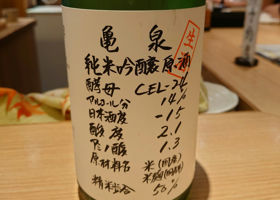 亀泉
生
純米吟醸原酒
酵母 CEL-24
アルコール分 14.5
日本酒度 -15
酸度 2.1
アミノ酸 1.3
原材料名 米(国産)
米麹(国産米)
精米歩合 50%